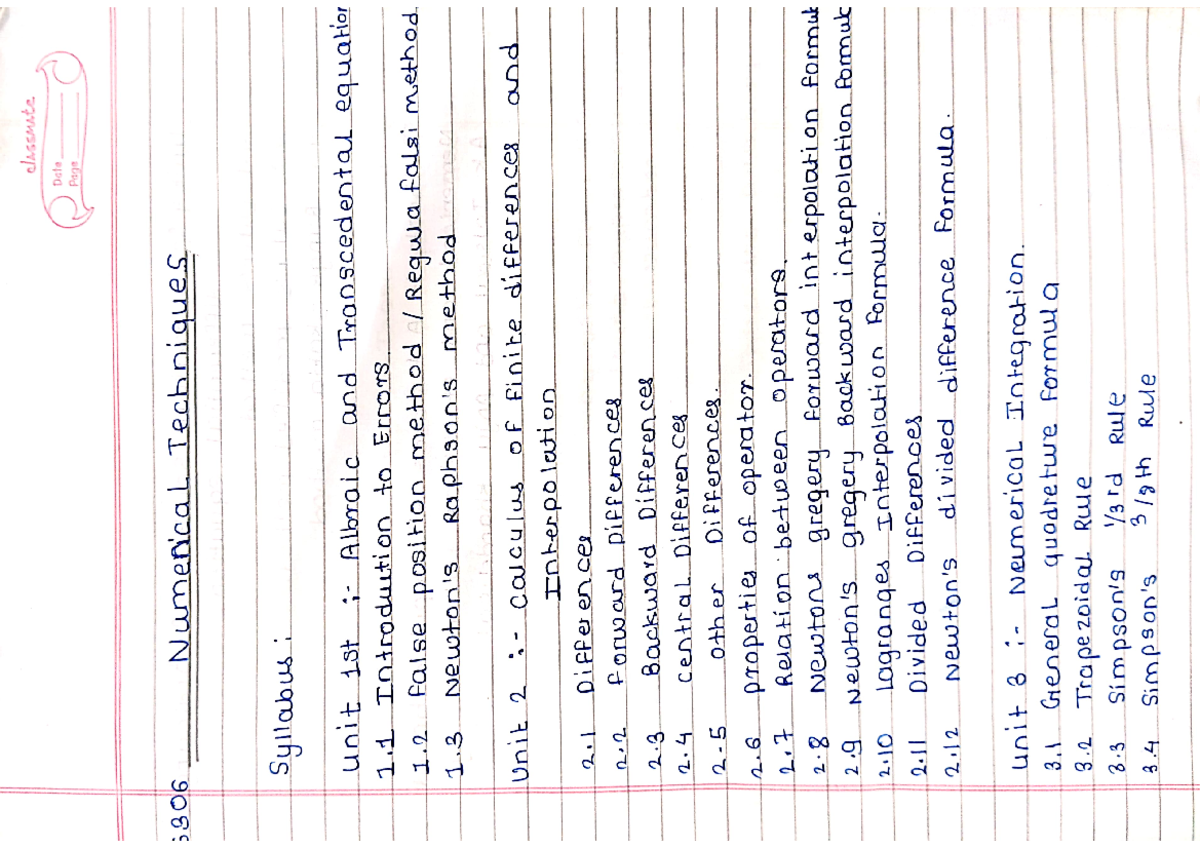 classmate
Date
Page
5306 Numerical Techniques
Syllabus :
Unit 1st :- Albraic and Transcedental equation
1.1 Introdution to Errors
1.2 False position method / Regula falsi method.
1.3 Newton's Raphson's method
Unit 2 :- Calculus of Finite differences and
Interpolation
2.1 Differences
2.2 Forward Differences
2.3 Backward Differences
2.4 Central Differences
2.5 other Differences.
2.6 properties of operator.
2.7 Relation between operators.
2.8 Newtons gregery forward interpolation formul
2.9 Newton's gregery Backward interpolation formul
2.10 Lagranges Interpolation Formula.
2.11 Divided Differences
2.12 Newton's divided difference Formula.
Unit 3 :- Neumerical Integration.
3.1 General quadreture formula
3.2 Trapezoidal Rule
3.3 Simpson's 1/3rd Rule
3.4 Simpson's 3/8th Rule